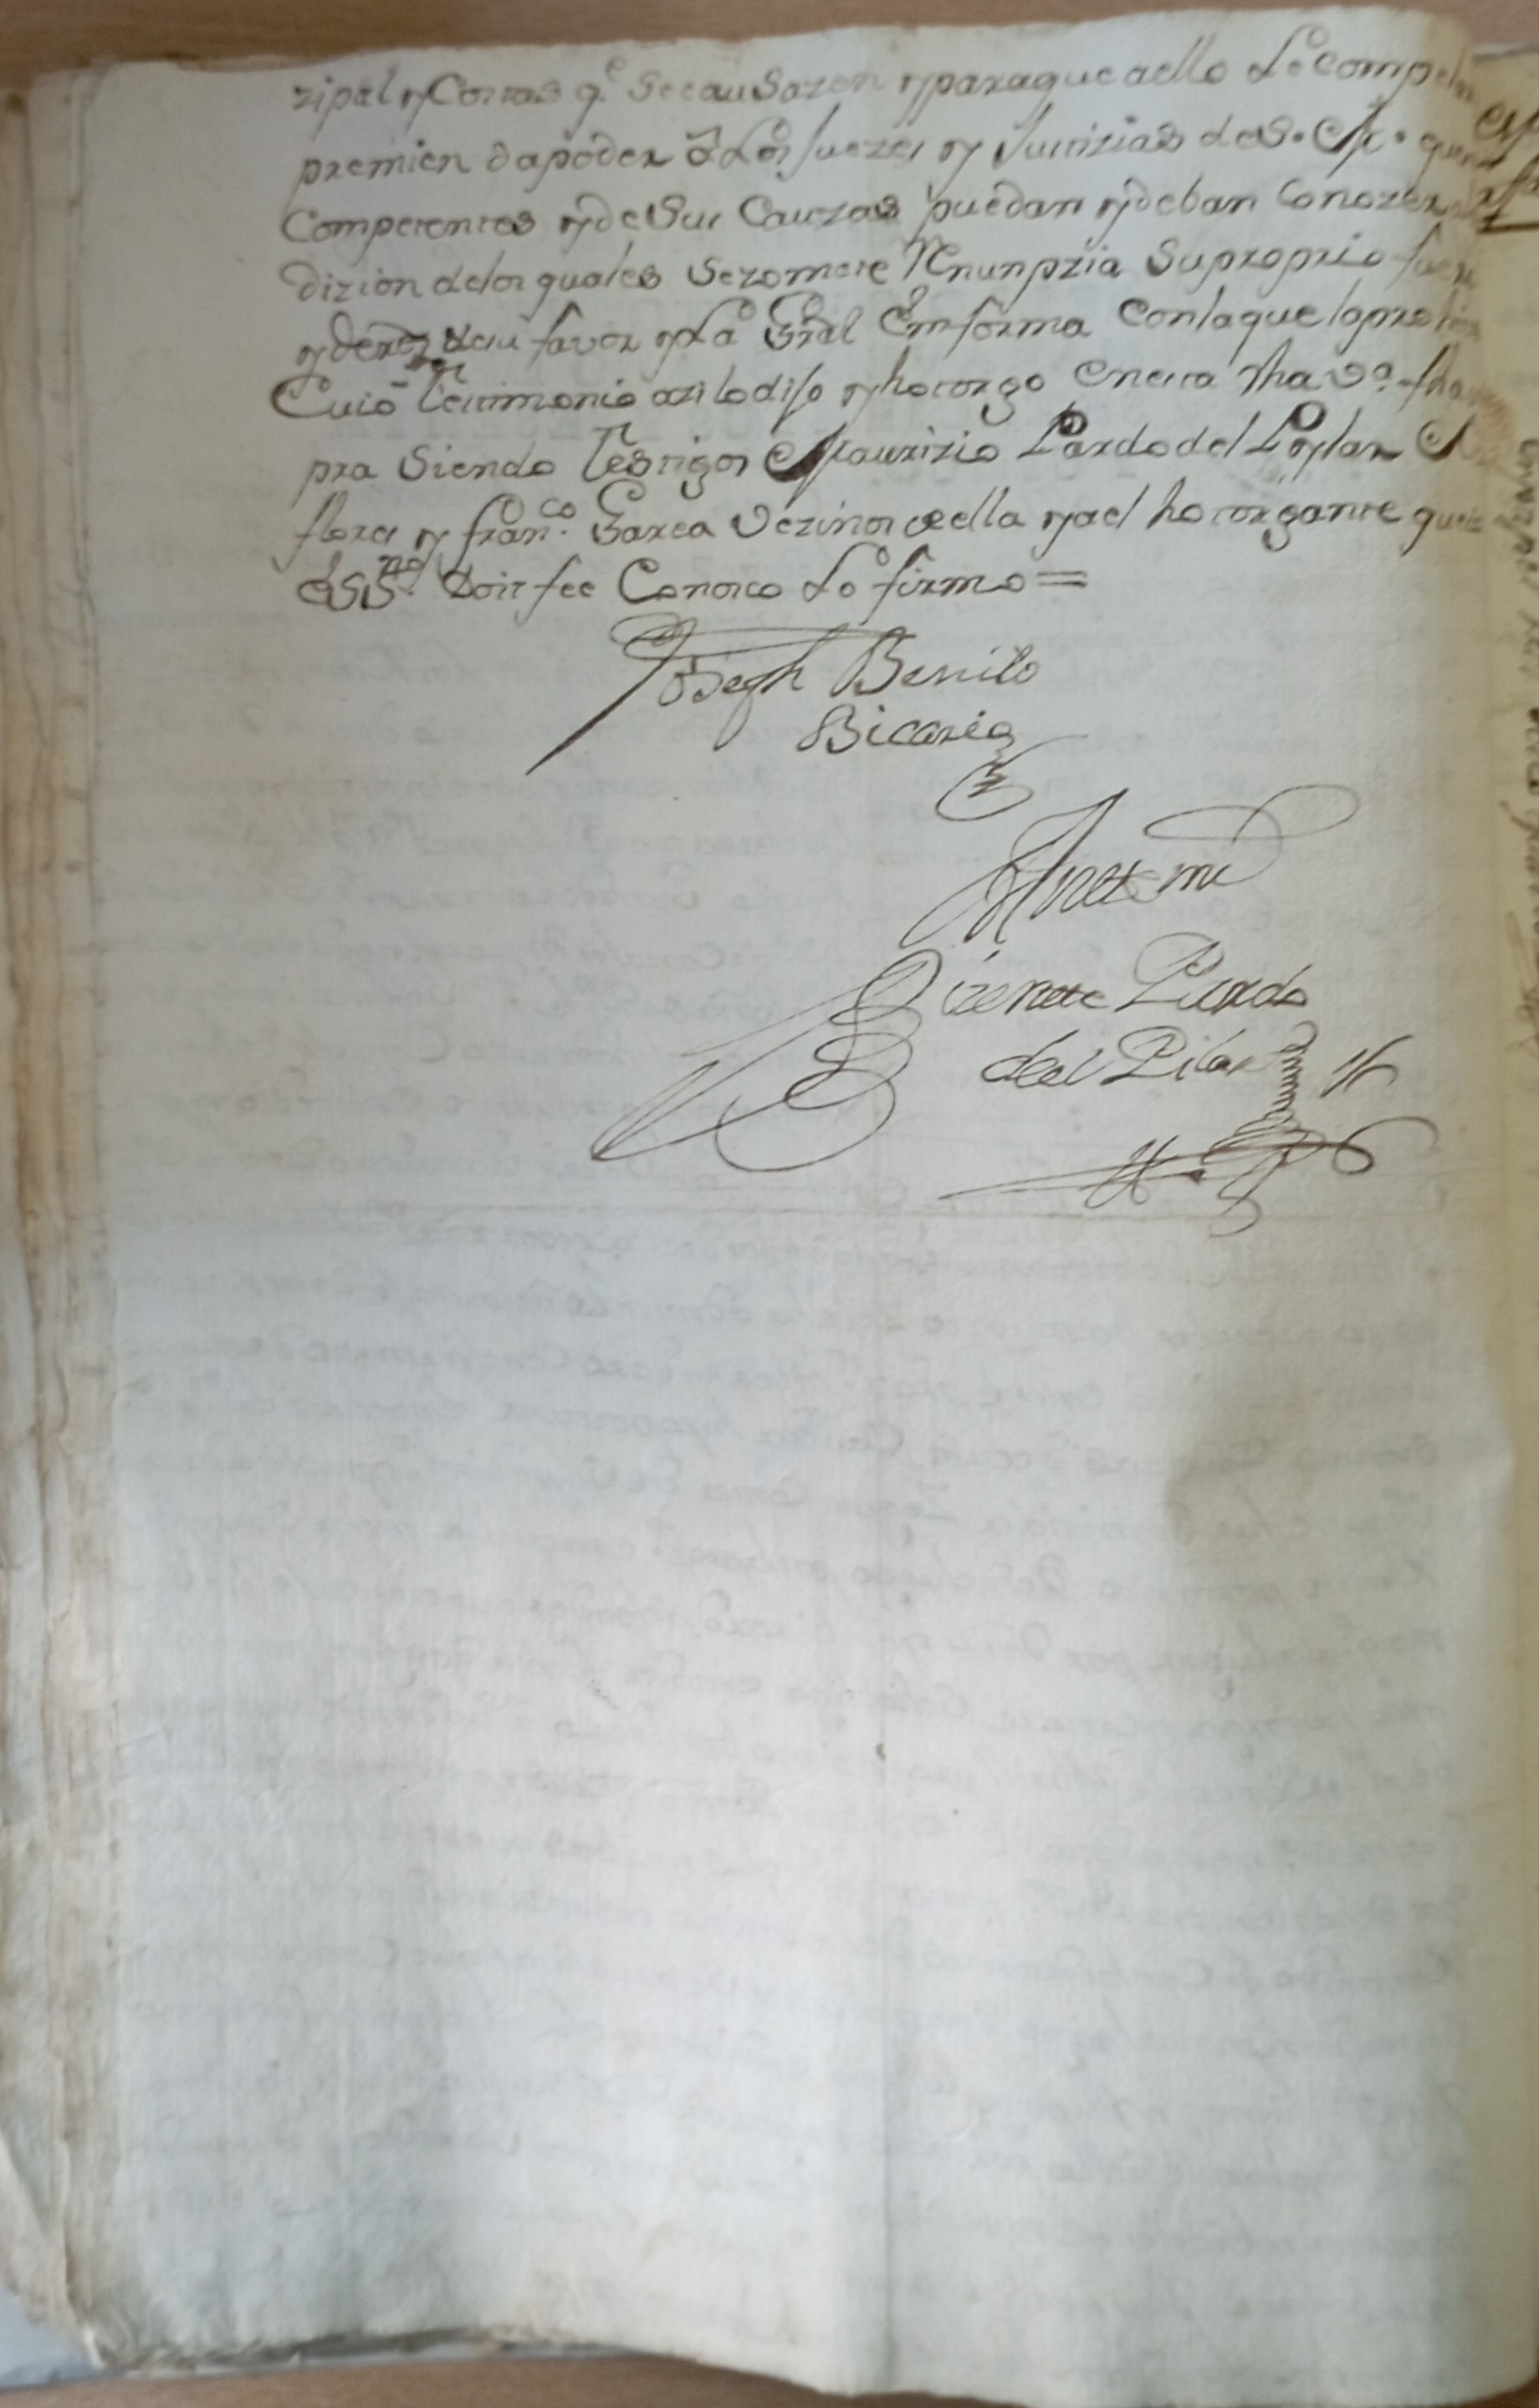 zipal y Costas q.e se causaren y para que a ello Le Compelan
premien da poder a Los Juezes y Justizias de S. M. que
Competentes y de Sus Cauzas puedan y deban Conozer
dizion de los quales se zomete Renunpzia Su proprio fuero
y deros de su favor y La Gral Em forma Con la que lo prohive
Cuio testimonio azi lo dijo y hotorgo en esta dha va. fha
pra Siendo testigos Maurizio Pardo del Pylar
flores y fran.co Garca Vezinos de ella y ael hotorgante que
esS.no Doit fee Conosco Lo firmo =
Joseph Benito
Bicario
Antte mi
Vizentte Pardo
del Pilar